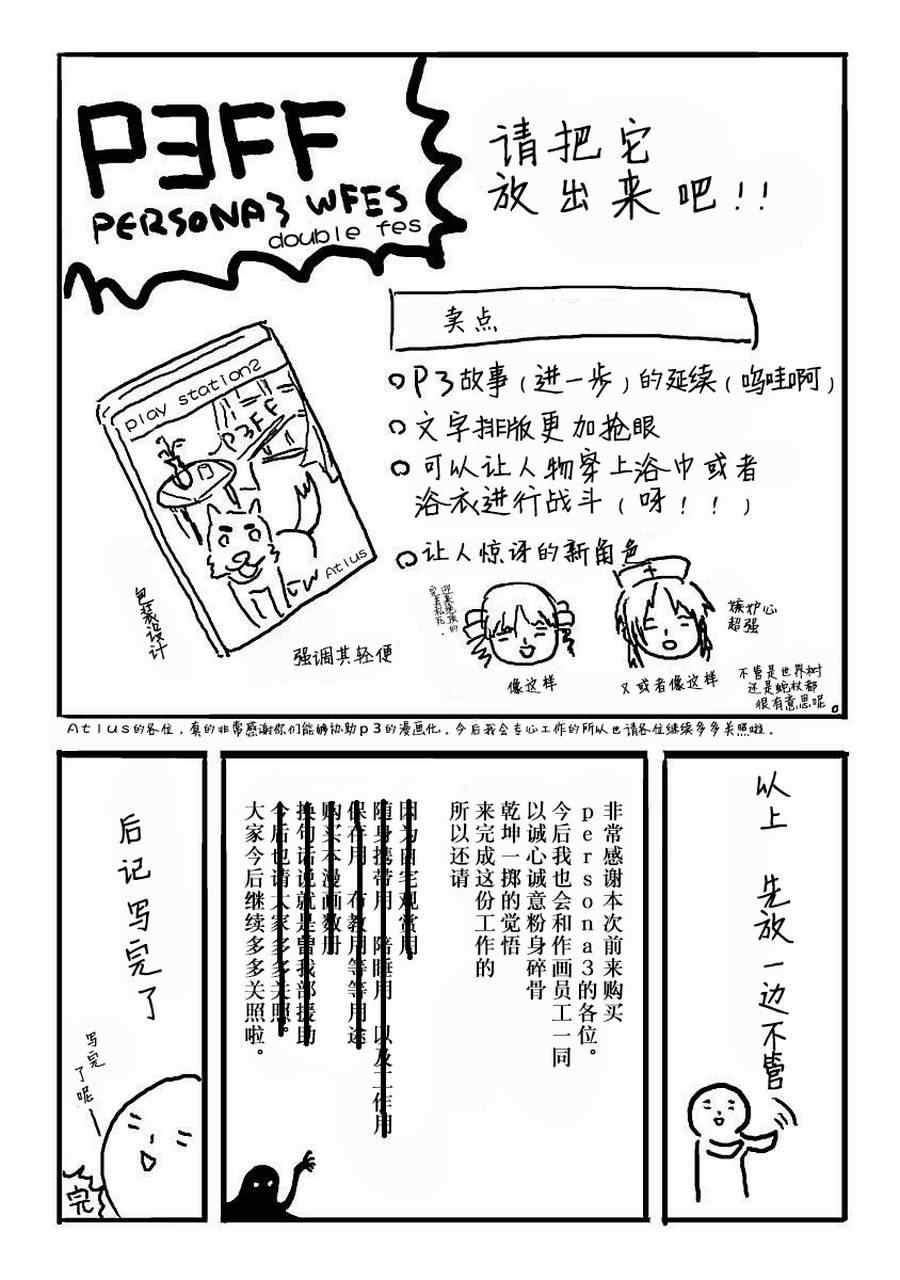 P3FF
PERSONA3 WFES
double fes
请把它
放出来吧!!
卖点
P3故事(进一步)的延续(呜哇啊)
文字排版更加抢眼
可以让人物穿上浴巾或者
浴衣进行战斗(呀!!)
让人惊讶的新角色
play station2
P3FF
Atlus
包装设计
强调其轻便
像这样
又或者像这样
嫉妒心
超强
不管是世界树
还是蛇杖都
很有意思呢
Atlus的各位，真的非常感谢你们能够协助p3的漫画化。今后我会专心工作的所以也请各位继续多多关照啦。
以上 先放一边不管
非常感谢本次前来购买
persona3的各位。
今后我也会和作画员工一同
以诚心诚意粉身碎骨
乾坤一掷的觉悟
来完成这份工作的
所以还请
因为自宅观赏用
随身携带用 陪睡用 以及工作用
保存用 布教用等等用途
购买本漫画数册
换句话说就是曾我部援助
今后也请大家多多关照。
大家今后继续多多关照啦。
后记写完了
写完
了呢
完